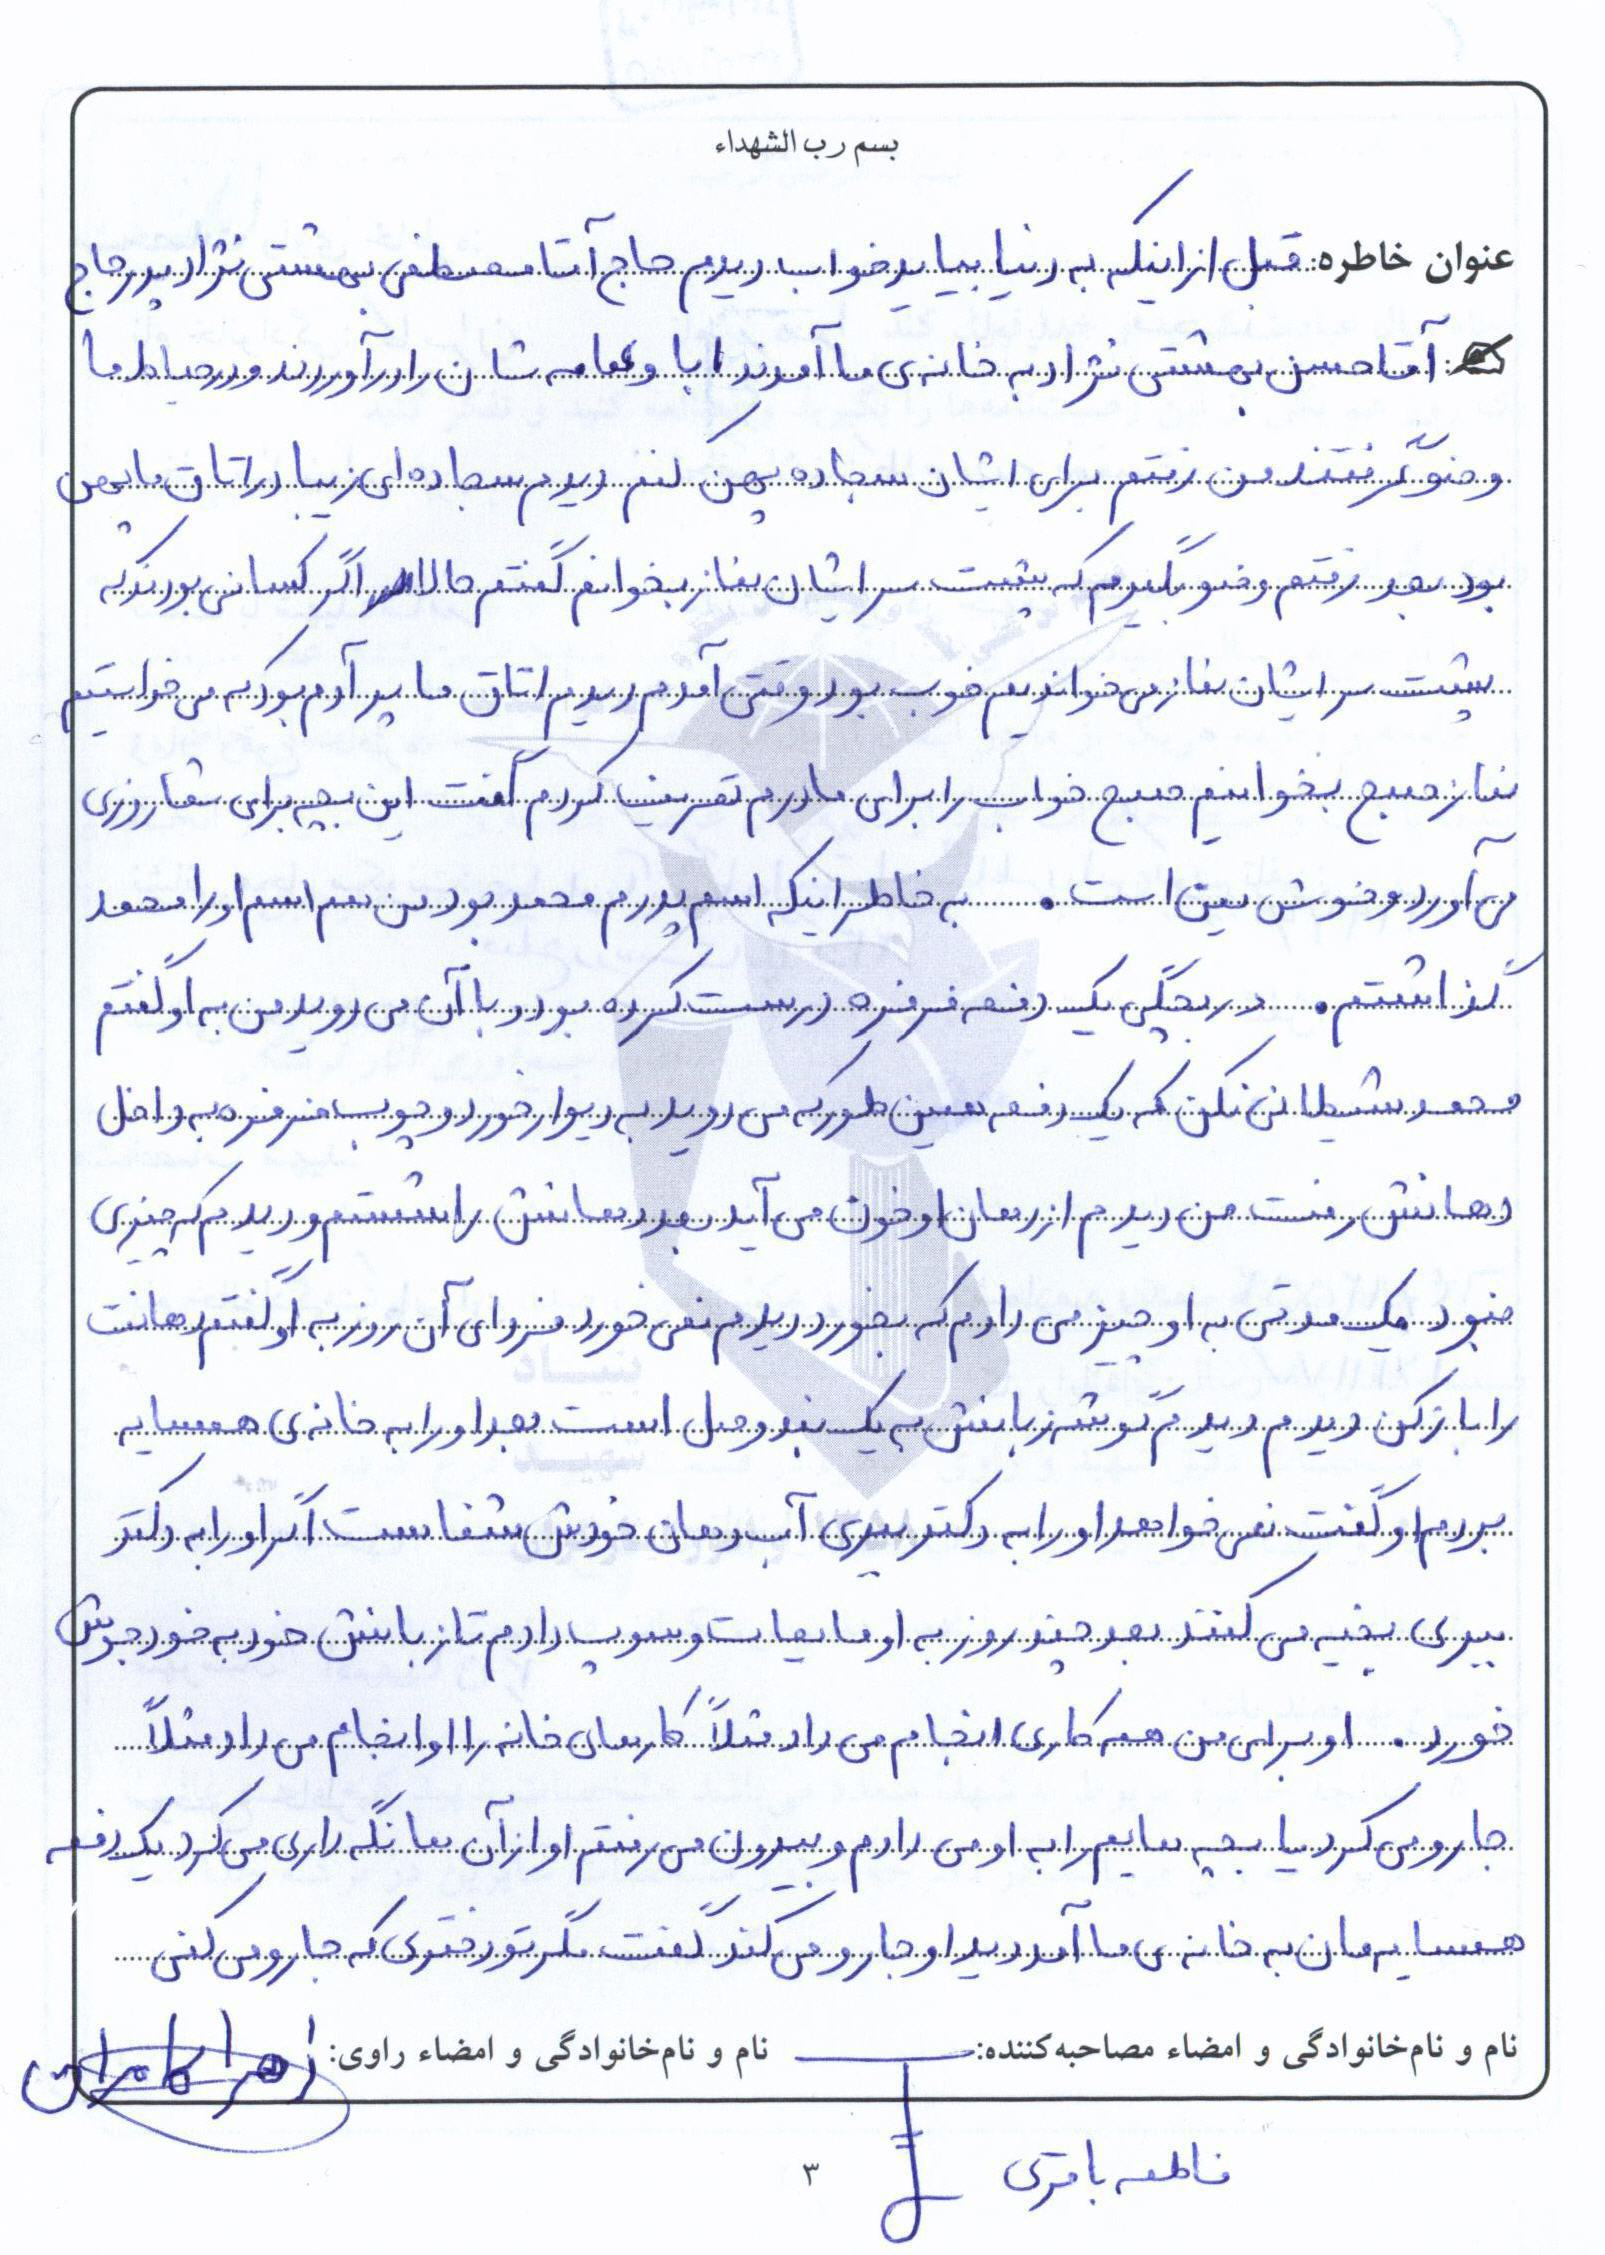 بسم رب الشهداء
عنوان خاطره: قبل از اینکه به دنیا بیاید خواب دیدم حاج آقا مصطفی بهشتی نژاد پدر حاج
آقا حسن بهشتی نژاد به خانه ی ما آمدند ابا و عمامه شان را در آوردند و در حیاط ما
وضو گرفتند من رفتم برای ایشان سجاده پهن کنم دیدم سجاده ای زیبا در اتاق ما پهن
بود بعد رفتم وضو بگیرم که پشت سر ایشان نماز بخوانم گفتم حالا اگر کسانی بودند که
پشت سر ایشان نماز می خواندیم خوب بود وقتی آمدم دیدم اتاق ما پر آدم بود که می خواستیم
نماز صبح بخوانیم صبح خواب را برای مادرم تعریف کردم گفت این بچه برای شما روزی
می آورد و خوش یمن است . به خاطر اینکه اسم پدرم محمد بود من هم اسم او را محمد
گذاشتم . در بچگی یک دفعه فرفره درست کرده بود و با آن می دوید من به او گفتم
محمد شیطانی نکن که یک دفعه همین طور که می دوید به دیوار خورد و چوب فرفره به داخل
دهانش رفت من دیدم از دهان او خون می آید بعد دهانش را شستم و دیدم که چیزی
نبود یک مدتی به او چیز می دادم که بخورد دیدم نمی خورد فردای آن روز به او گفتم دهانت
را باز کن دیدم دیدم گوشه زبانش به یک بند وصل است بعد او را به خانه ی همسایه
بردم او گفت نمی خواهد او را به دکتر ببری آب دهان خودش شفاست اگر او را به دکتر
ببری بخیه می کنند بعد چند روز به او مایعات و سوپ دادم تا زبانش خود به خود جوش
خورد . او برای من همه کاری انجام می داد مثلاً کارهای خانه را او انجام می داد مثلاً
جارو می کرد یا بچه هایم را به او می دادم و بیرون می رفتم او از آن ها نگه داری می کرد یک دفعه
همسایه مان به خانه ی ما آمد دید او جارو می کند گفت مگر تو دختری که جارو می کنی
نام و نام‌خانوادگی و امضاء مصاحبه‌کننده: نام و نام‌خانوادگی و امضاء راوی: زهرا کامرانی
فاطمه باقری
۳